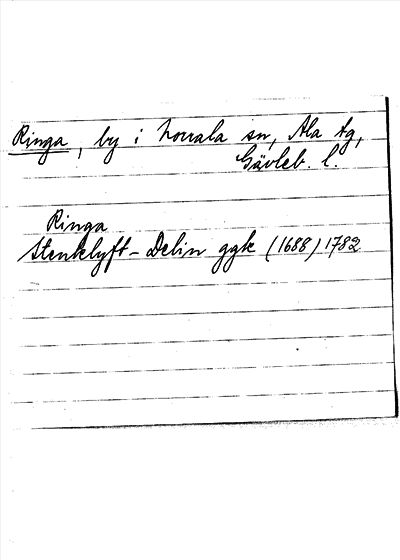 Ringa, by i Norrala sn, Ala tg,
Gävleb. l.
Ringa
Stenklyft - Delin ggk (1688) 1782